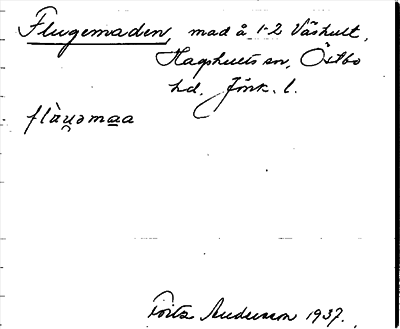 Flugemaden, mad å 1-2 Våshult,
Hagshults sn, Östbo
hd. Jönk. l.
flàu̯əmaa
Fritz Andersson 1937.